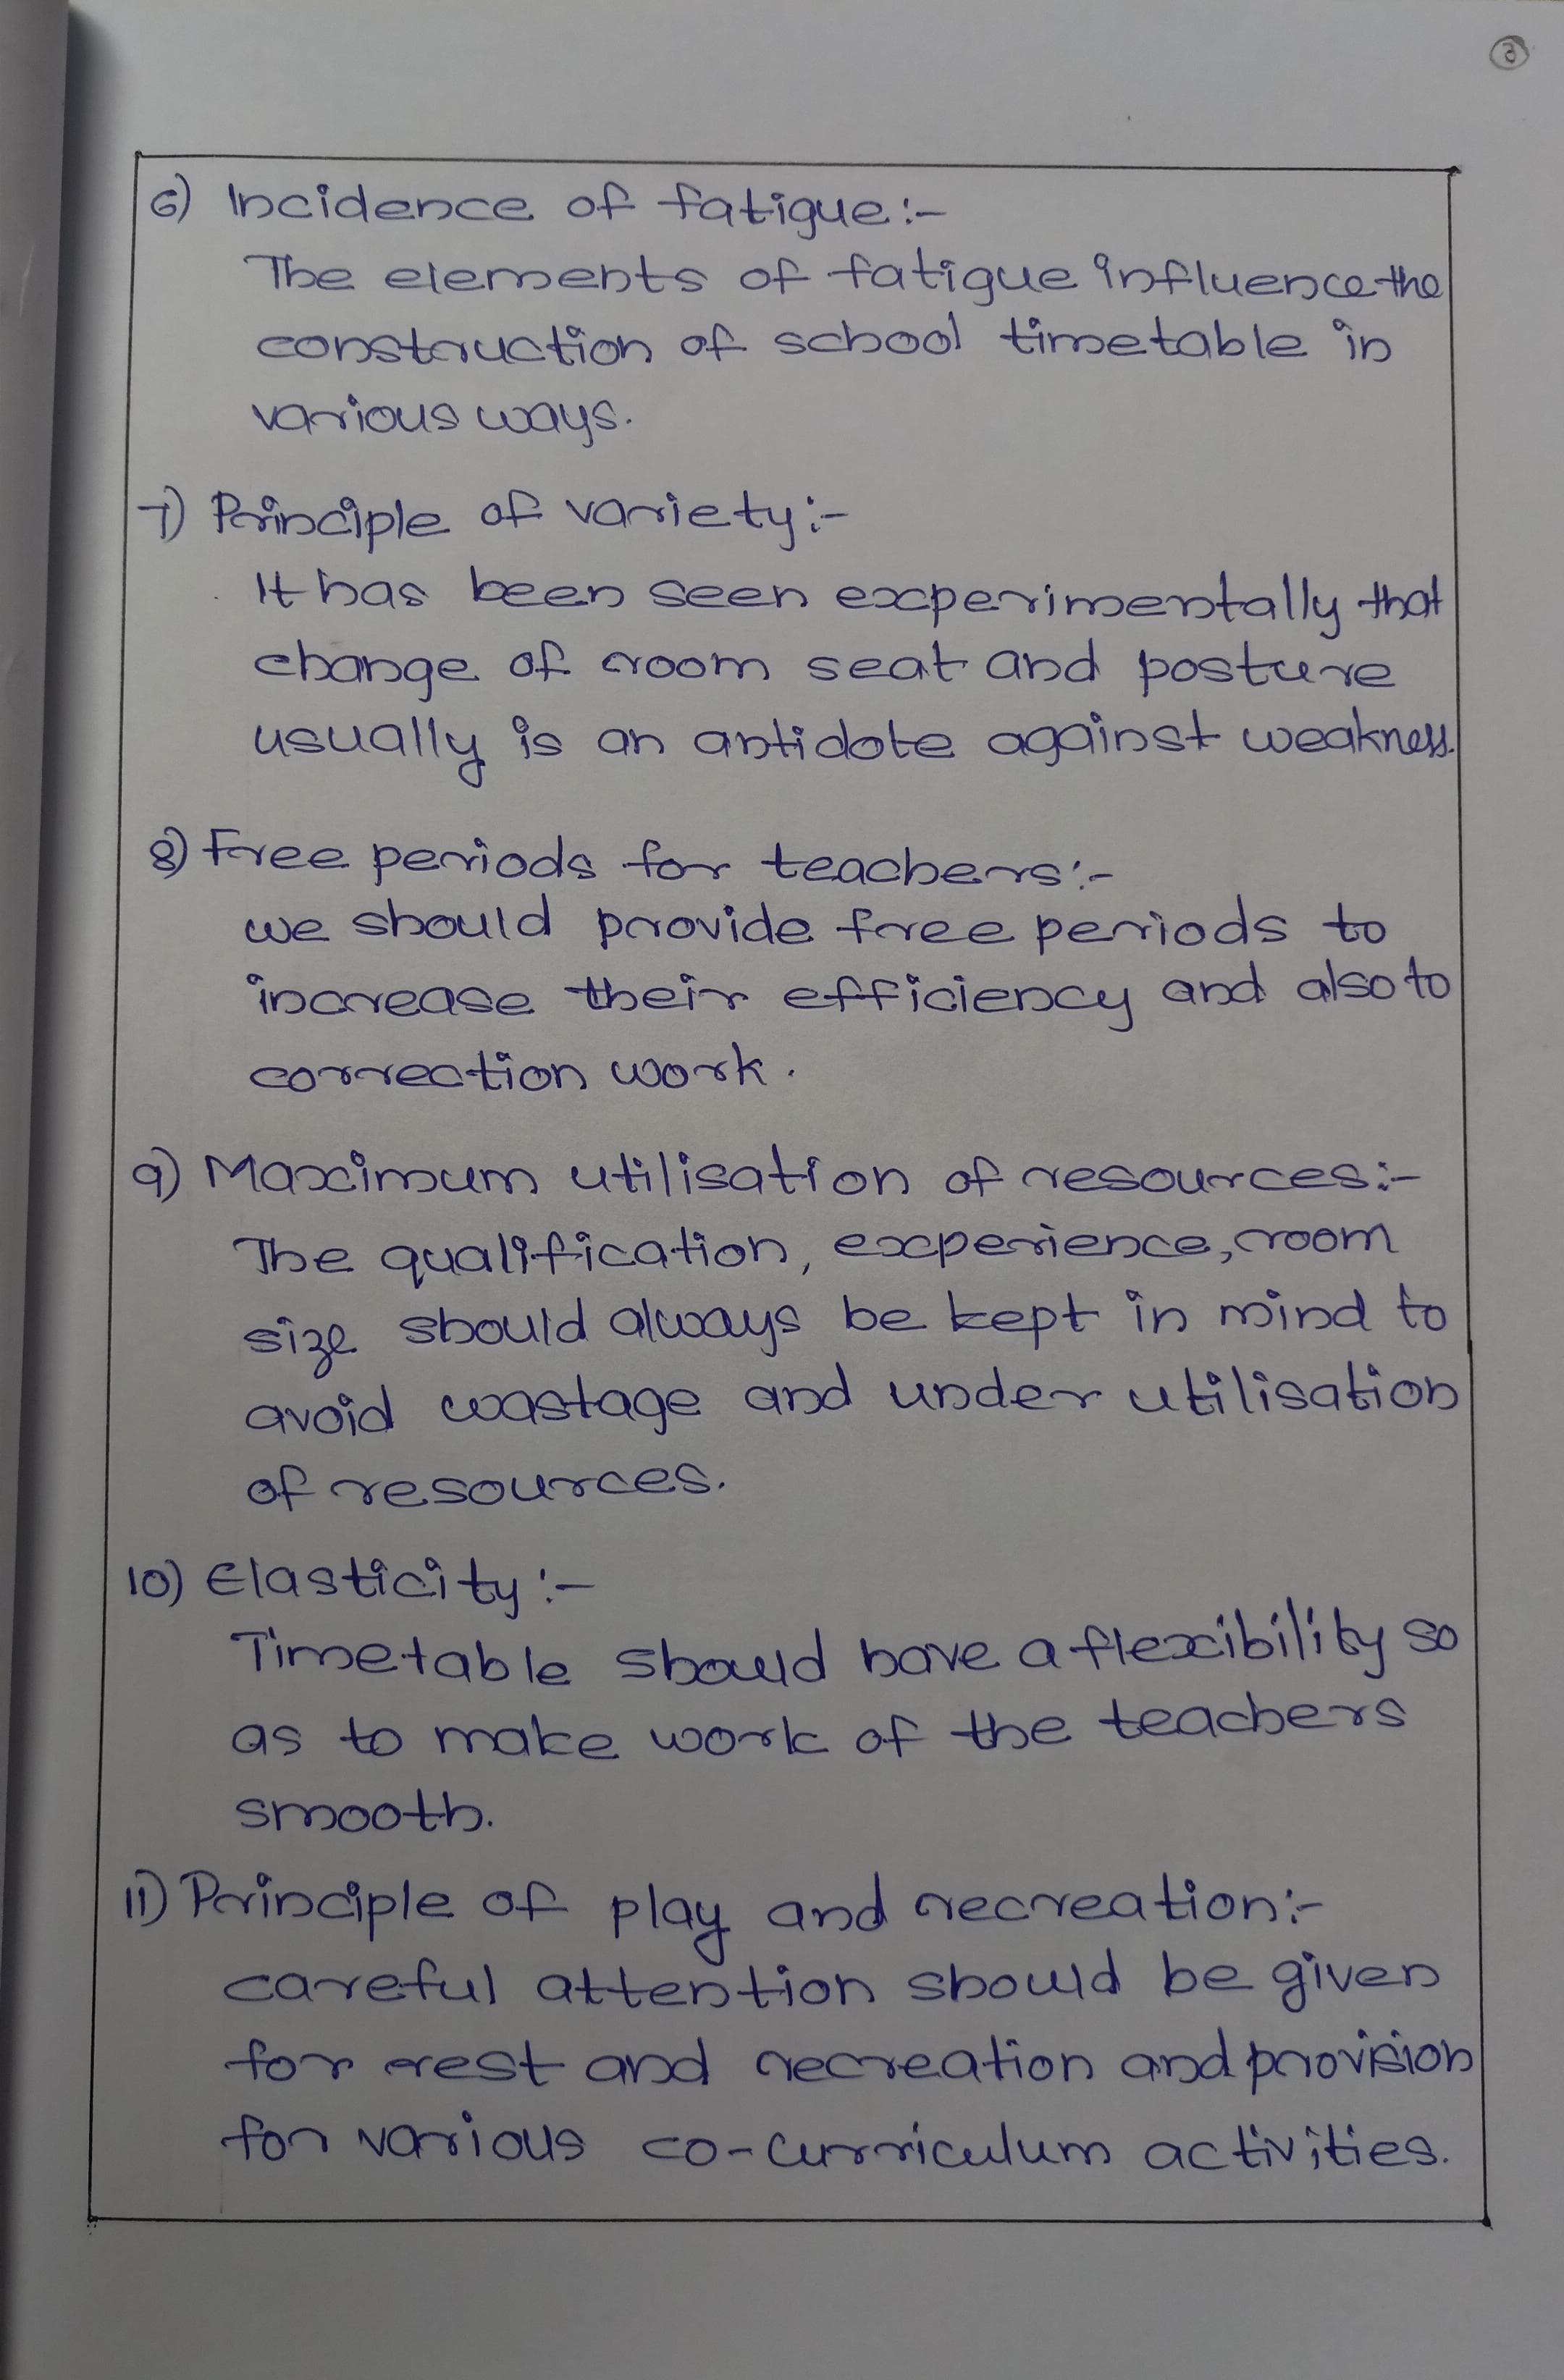 3
6) Incidence of fatigue:-
The elements of fatigue influence the
construction of school timetable in
various ways.
7) Principle of variety:-
It has been seen experimentally that
change of room seat and posture
usually is an antidote against weakness.
8) Free periods for teachers:-
we should provide free periods to
increase their efficiency and also to
correction work.
9) Maximum utilisation of resources:-
The qualification, experience, room
size should always be kept in mind to
avoid wastage and under utilisation
of resources.
10) Elasticity:-
Timetable should have a flexibility so
as to make work of the teachers
smooth.
11) Principle of play and recreation:-
careful attention should be given
for rest and recreation and provision
for various co-curriculum activities.